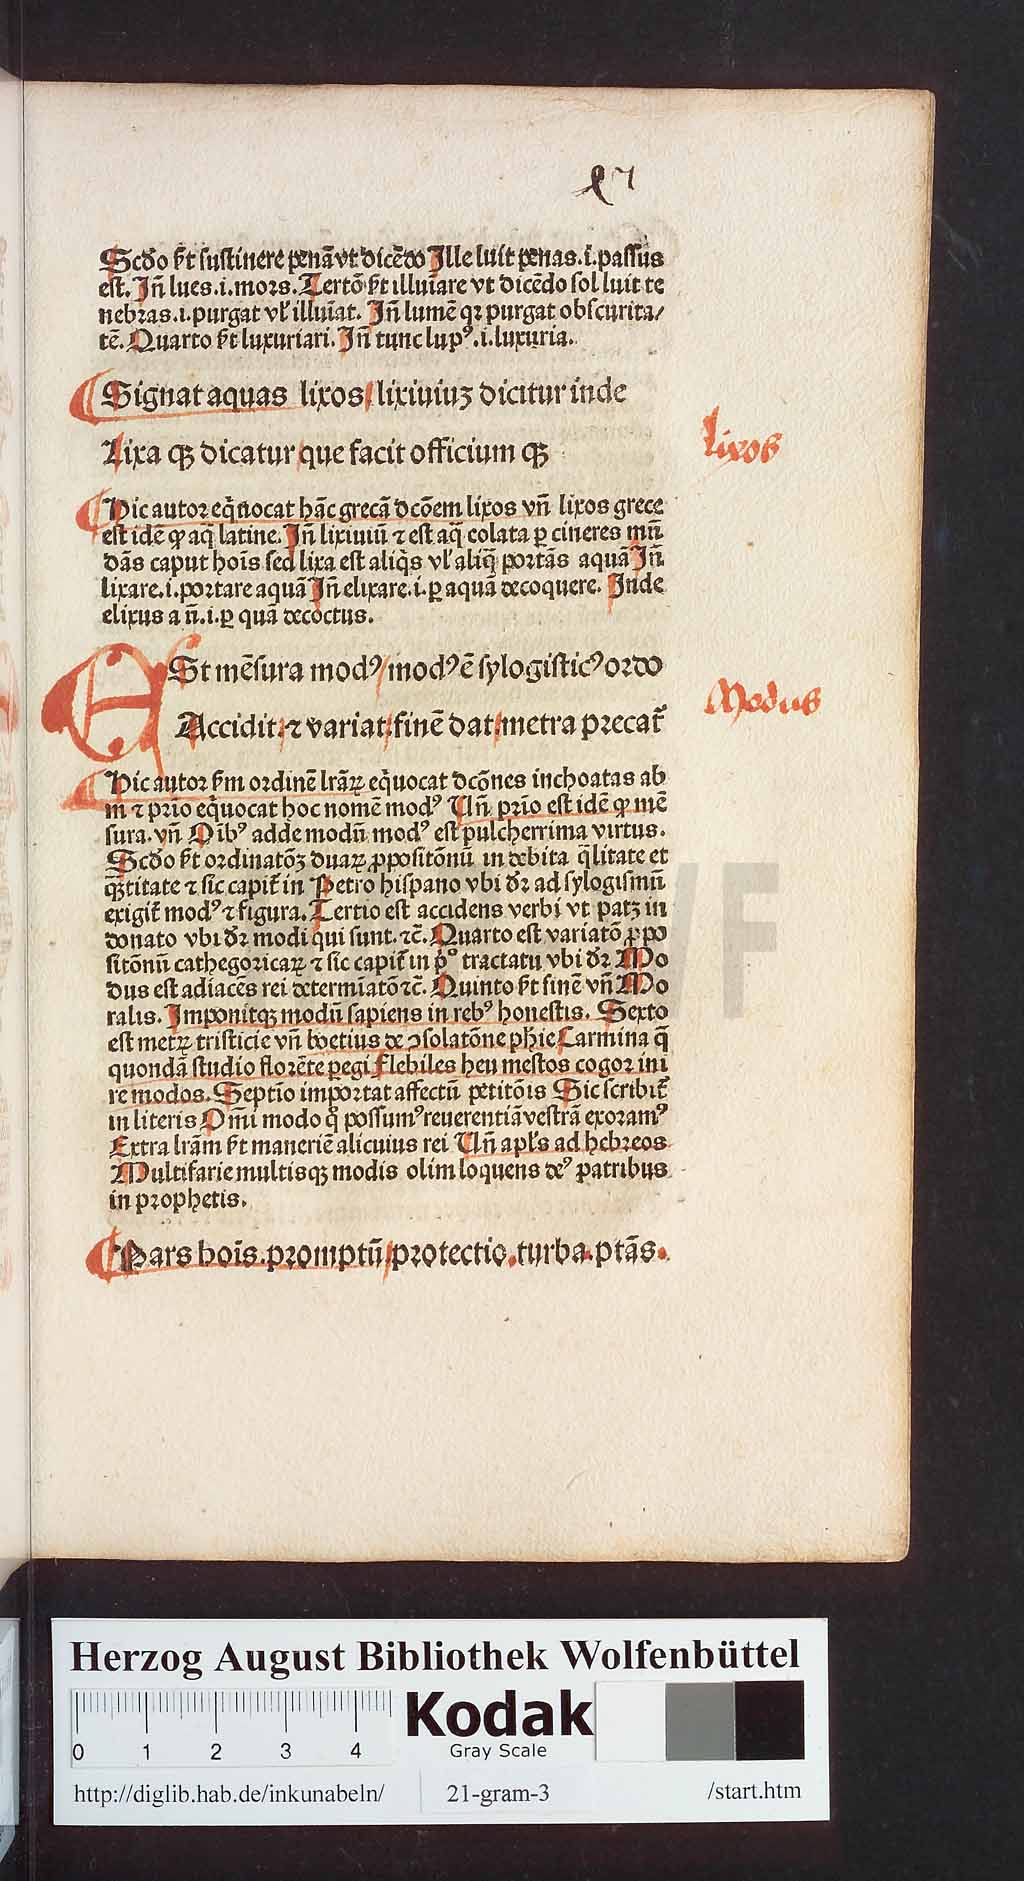 Scďo ẜt sustinere penā vt dicēdo Ille luit penas .i. passus
est. Iñ lues .i. mors. Tertō ẜt illuīare vt dicēdo sol luit te
nebras .i. purgat vľ illuīat. Iñ lumē qꝛ purgat obscurita/
tē. Quarto ẜt luxuriari. Iñ tunc lupꝰ .i. luxuria.
Signat aquas lixos lixiuiuꝫ dicitur inde
Lixa qꝫ dicatur que facit officium qꝫ
lixos
Hic autor eq̈uocat hāc grecā dcōem lixos vñ lixos grece
est idē qꝙ aq̄ latine. Iñ lixiuiū ⁊ est aq̄ colata ꝑ cineres mū
dās caput hoīs sed lixa est aliq̈s vľ aliq̄ portās aquā Iñ
lixare .i. portare aquā Iñ elixare .i. ꝑ aquā decoquere. Inde
elixus a ñ .i. ꝑ quā decoctus.
ESt mēsura modꝰ modꝰ ē sylogisticꝰ ordo
Modus
Accidit ⁊ variat finē dat metra precať
Hic autor ẜm ordinē lrāꝝ eq̈uocat dcōnes inchoatas ab
m ⁊ prīo eq̈uocat hoc nomē modꝰ Uñ prīo est idē qꝙ mē
sura. vñ Oībꝰ adde modū modꝰ est pulcherrima virtus.
Scďo ẜt ordinatōꝫ duaꝝ ꝓpositōnū in debita q̄litate et
qꝫtitate ⁊ sic capiť in Petro hispano vbi dꝛ ad sylogismū
exigiť modꝰ ⁊ figura. Tertio est accidens verbi vt patꝫ in
donato vbi dꝛ modi qui sunt. ⁊c̄. Quarto est variatō ꝓpo
sitōnū cathegoricaꝝ ⁊ sic capiť in p̊ꝰ tractatu vbi dꝛ Mo
dus est adiacēs rei determīatō ⁊c̄. Quinto ẜt finē vñ Mo
ralis. Imponitqꝫ modū sapiens in rebꝰ honestis. Sexto
est metꝝ tristicie vñ boetius de ↄsolatōne phīe Carmina q̄
quondā studio florēte peregi Flebiles heu mestos cogor ini
re modos. Septīo importat affectū petitōis Sic scribiť
in literis Omī modo q̊ possumꝰ reuerentiā vestrā exoramꝰ
Extra lrām ẜt maneriē alicuius rei Uñ apľs ad hebreos
Multifarie multisqꝫ modis olim loquens deꝰ patribus
in prophetis.
Pars hoīs. promptū protectio. turba. ptās.
Herzog August Bibliothek Wolfenbüttel
0 1 2 3 4
Kodak
Gray Scale
http://diglib.hab.de/inkunabeln/ 21-gram-3 /start.htm